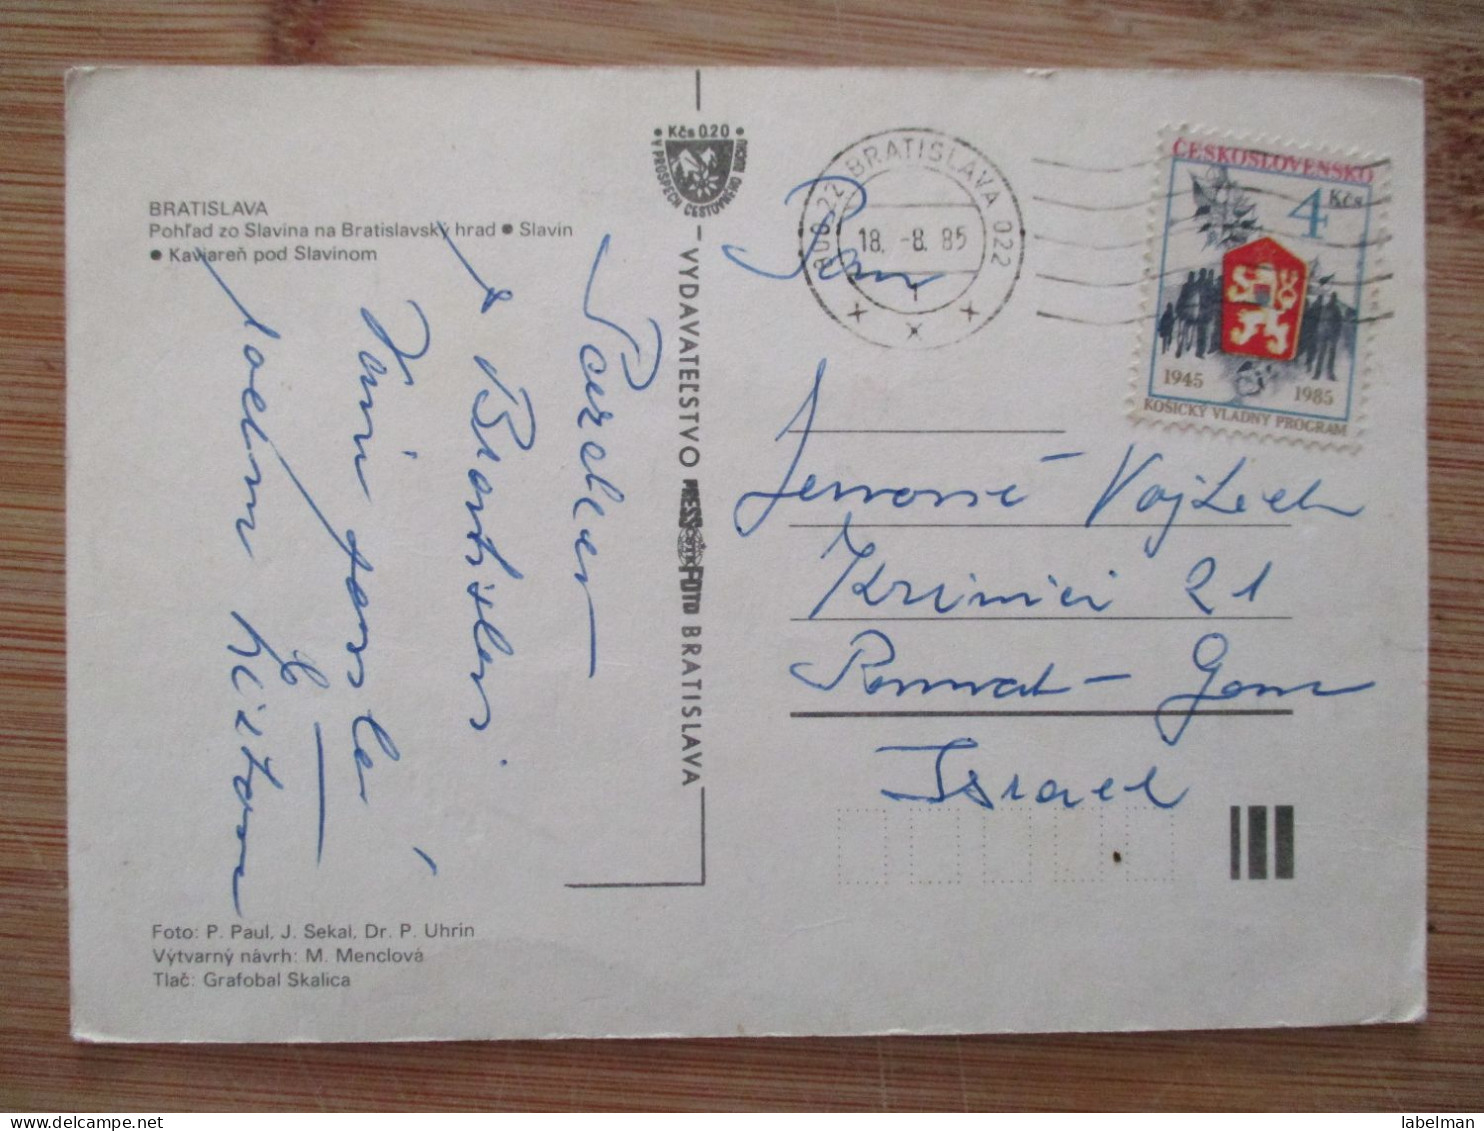 BRATISLAVA
Pohľad zo Slavína na Bratislavský hrad • Slavín
• Kaviareň pod Slavínom
• Kčs 0.20 •
V PROSPECH CESTOVNÉHO RUCHU
VYDAVATEĽSTVO PRESSFOTO BRATISLAVA
BRATISLAVA 022
18. -8. 85
ČESKOSLOVENSKO
4 Kčs
1945
1985
KOŠICKÝ VLÁDNY PROGRAM
Pozdrav
z Bratislavy
Vám posiela
Pan
Vojtech
21
Ramat-Gan
Israel
Foto: P. Paul, J. Sekal, Dr. P. Uhrin
Výtvarný návrh: M. Menclová
Tlač: Grafobal Skalica
labelman
delcampe.net